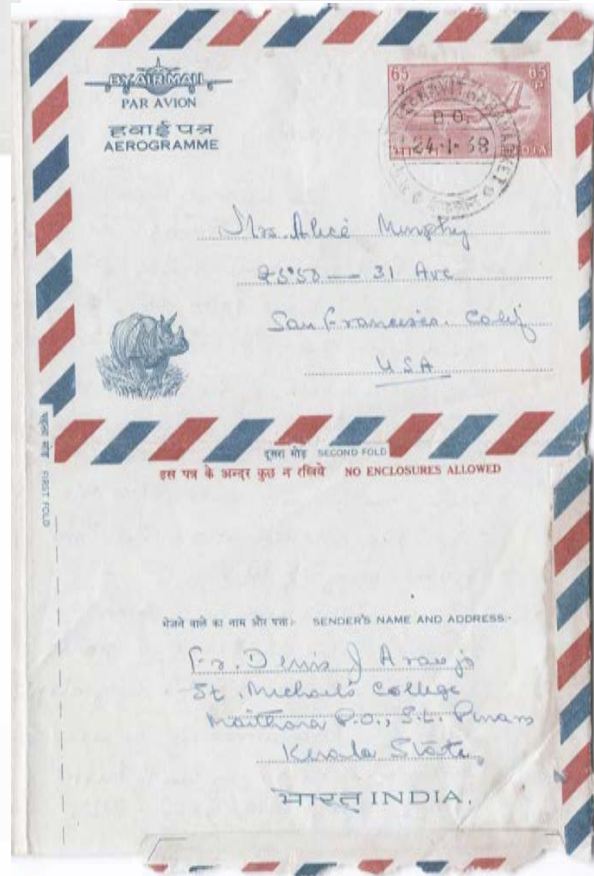 BY AIR MAIL
PAR AVION
हवाई पत्र
AEROGRAMME
65 65
P
INDIA
24·1·68
Mrs. Alice Murphy
31 Ave
San Francisco. Calif
USA
पहला मोड़ FIRST FOLD
दूसरा मोड़ SECOND FOLD
इस पत्र के अन्दर कुछ न रखिये NO ENCLOSURES ALLOWED
भेजने वाले का नाम और पता:- SENDER'S NAME AND ADDRESS:-
Fr. Denis J Araujo
St. Michael's College
P.O.,
Kerala State,
भारत INDIA.